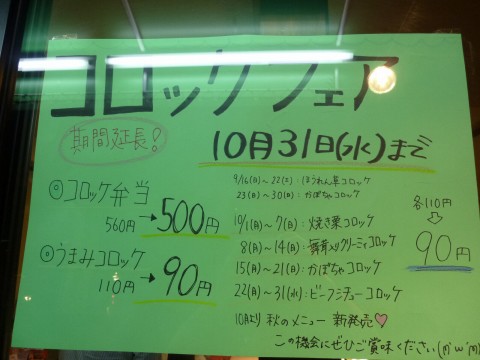 コロッケフェア
期間延長!
10月31日(水)まで
◎コロッケ弁当
560円→500円
◎うまみコロッケ
110円→90円
9/16(日)〜22(土):ほうれん草コロッケ
23(日)〜30(日):かぼちゃコロッケ
10/1(月)〜7(日):焼き栗コロッケ
8(月)〜14(日):舞茸入りクリーミィコロッケ
15(月)〜21(日):かぼちゃコロッケ
22(月)〜31(水):ビーフシチューコロッケ
各110円
⇩
90円
10月より 秋のメニュー 新発売♡
この機会にぜひご賞味ください(*'ω'*)